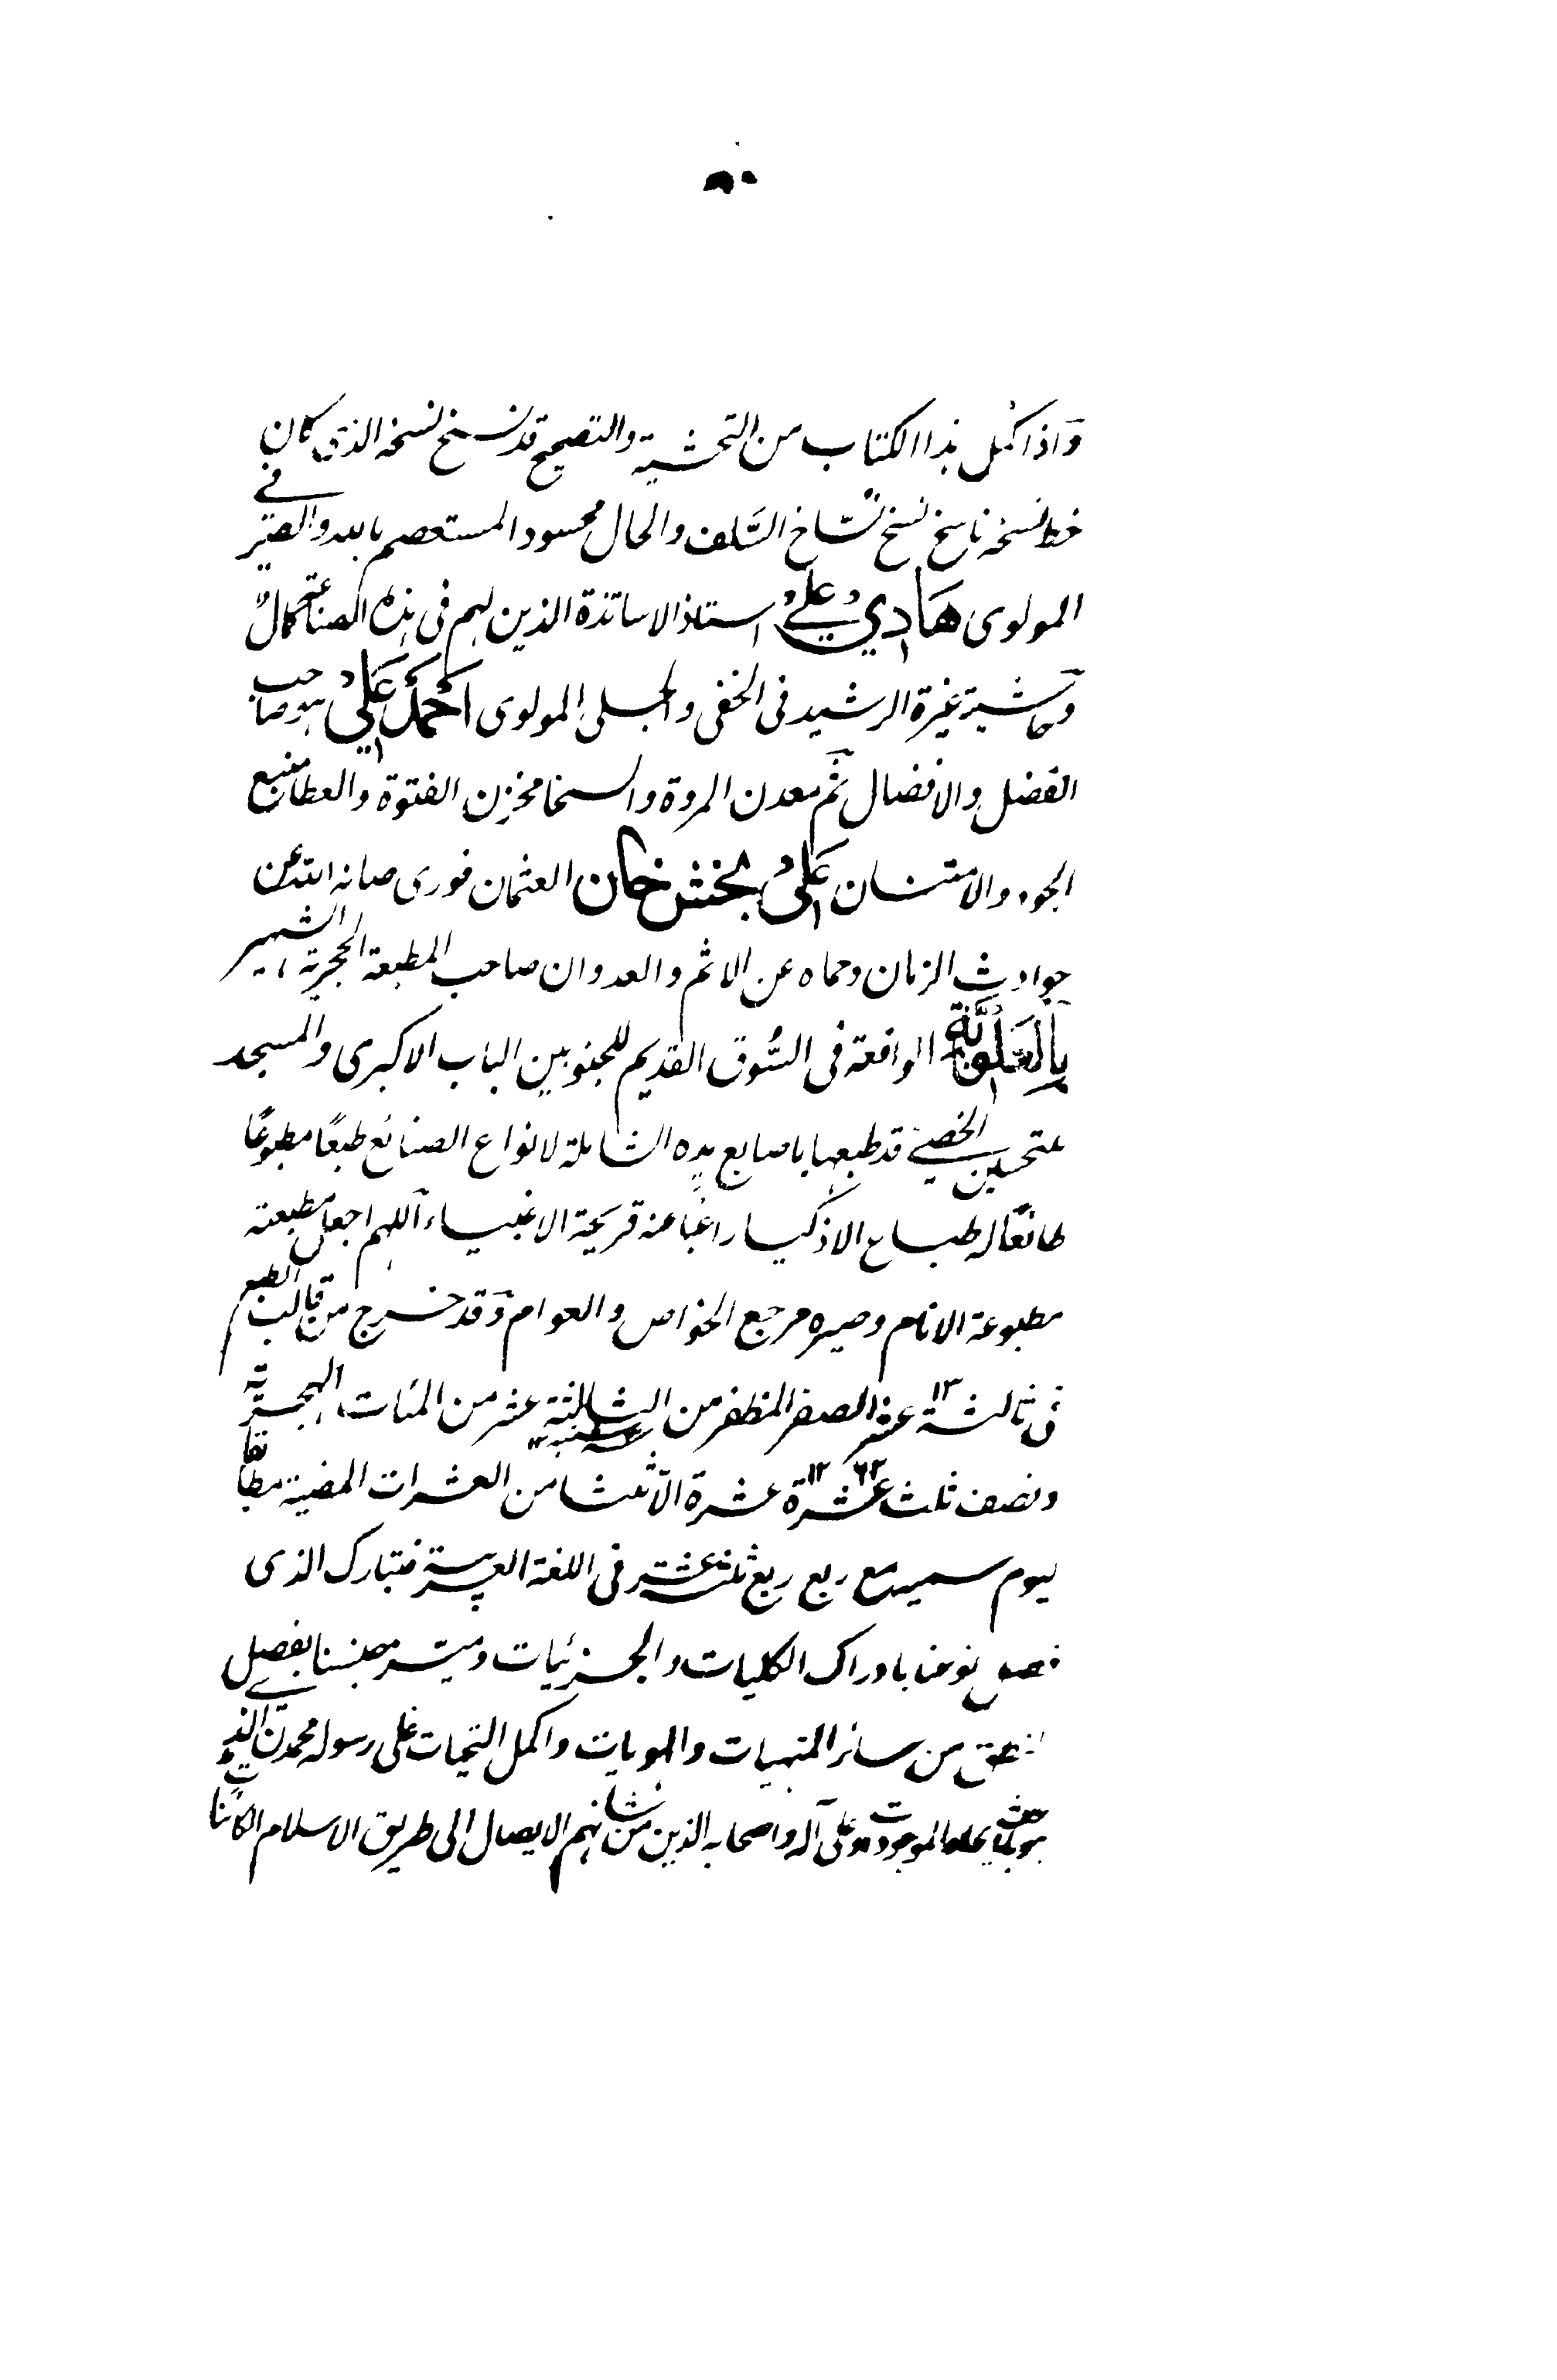 واذا كمل هذا الكتاب من التحشية والتصحيح قد نسخ نسخه الذى كان فى
خط نسخه ناسخ نسخ نسّاخ السَّلف والحال محسود المستعصم بالله والصير
المولوى هَادِي عَلِي استاذ الاساتذة الذين لهم فى هذه الصناعة كمالٌ
وحاشية غيرة الرشيد فى الخفى والجلى المولوى اَحْمَد عَلِي هو صاحب
الفضل والافضال ثم معدن المروة والسخا مخزن الفتوة والعطا منبع
الجود والامتنان عَلِي بخش خان العثمان فورى صانه الله عن
حوادث الزمان وحماه عن الاثم والعدوان صاحب المطبعة الحجرية الشهير
بِالعَلَوِيَّة الواقعة فى السُّوق القديم للجنوبين الباب الاكبرى والمسجد
تحسين الخصى قد طبعها باصابع يده الشاملة لانواع الصنائع طبعًا مطبوعًا
طائعًا له طباع الاذكيا راغبًا عنه قريحة الاغبياء اللهم اجعل مطبعته
مطبوعة الانام وصيره مرجع الخواص والعوام وقد خرج من قالب الطبع
فى ثالثة ١٣ عشر الصفر المظفر من الثالثة عشر من المئات الهجرية
ونصف ثلث عشرة ١٢ عشرة الا ثلثا من العشرات المضية مطابقا
ليوم مع ربع ربع ثلثة عشر فى اللغة العربية فتبارك الذى
نوعنا بادراك الكليات والجزئيات وميّز جنسنا بفصل
من سائر المنهيات والهويات واكمل التحيات على رسوله محمدن الذى
الموجودات وعلى آله واصحابه الذين من شانهم الايصال الى طريق الاسلام